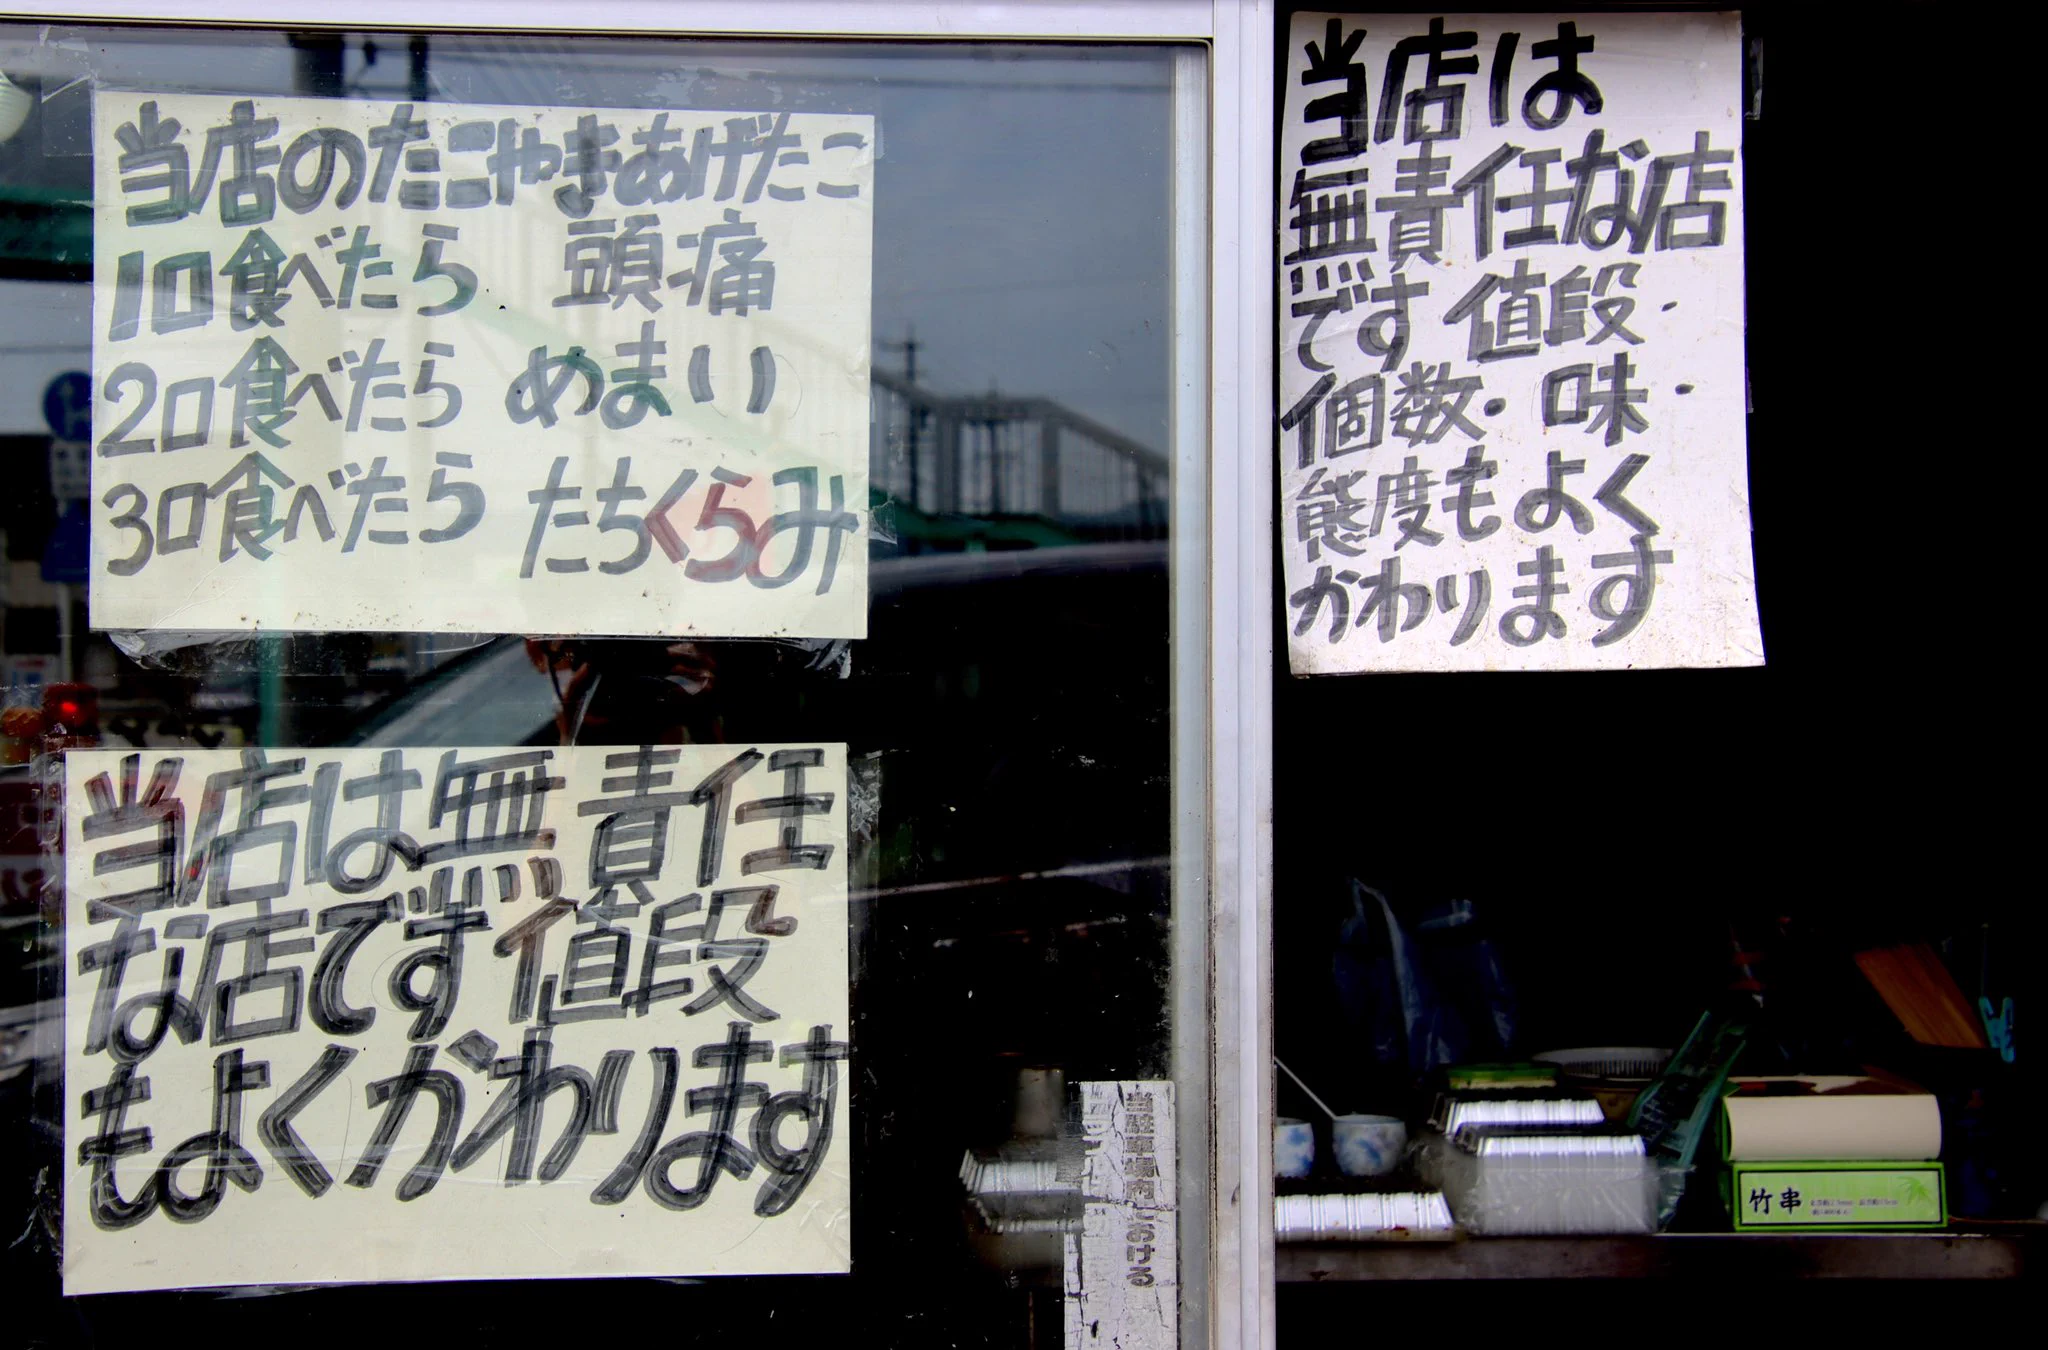 当店のたこやきあげたこ
1口食べたら 頭痛
2口食べたら めまい
3口食べたら たちくらみ
当店は無責任
な店です値段
もよくかわります
当店は
無責任な店
です値段・
個数・味・
態度もよく
かわります
竹串